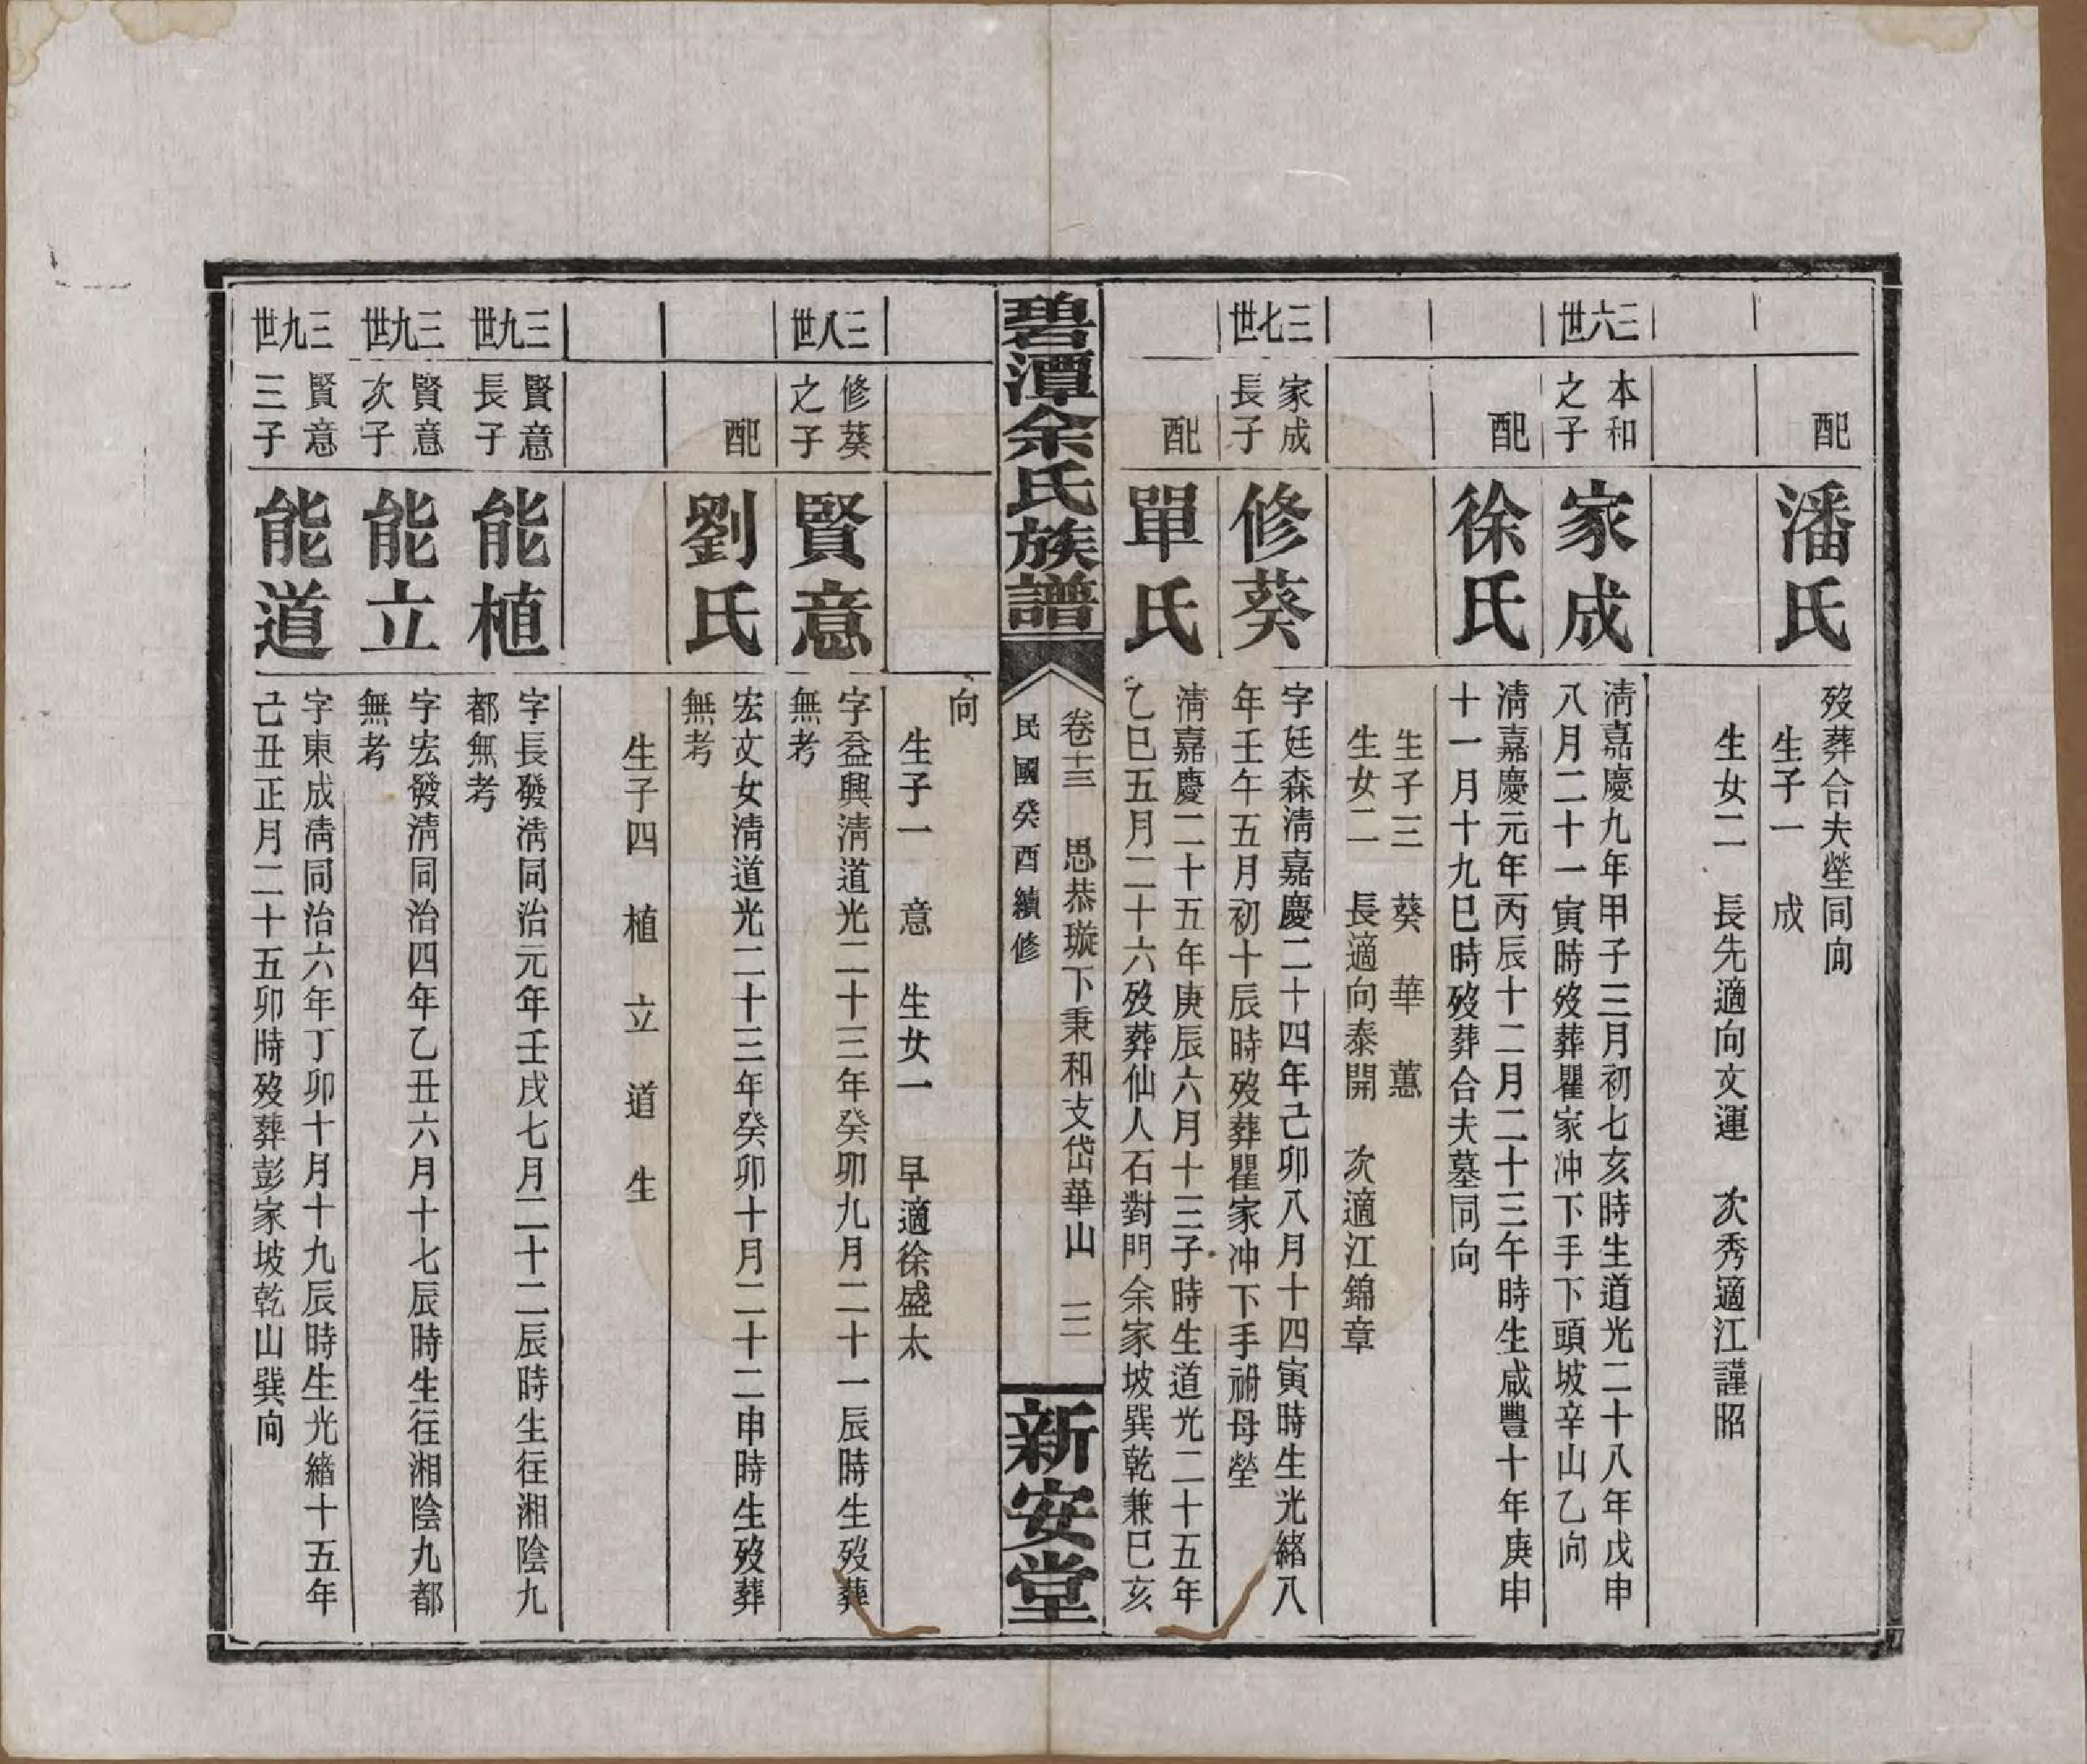 配
潘氏
歿葬合夫塋同向
生子一　成
生女二　長先適向文運　次秀適江謹昭
三六世
本和
之子
家成
淸嘉慶九年甲子三月初七亥時生道光二十八年戊申
八月二十一寅時歿葬瞿家冲下手下頭坡辛山乙向
配
徐氏
淸嘉慶元年丙辰十二月二十三午時生咸豐十年庚申
十一月十九巳時歿葬合夫墓同向
生子三　葵　華　蕙
生女二　長適向泰開　次適江錦章
三七世
家成
長子
修葵
字廷森淸嘉慶二十四年己卯八月十四寅時生光緒八
年壬午五月初十辰時歿葬瞿家冲下手祔母塋
配
單氏
淸嘉慶二十五年庚辰六月十三子時生道光二十五年
乙巳五月二十六歿葬仙人石對門余家坡巽乾兼巳亥
碧潭余氏族譜
卷十三　思恭璇下秉和支岱華山　二
民國癸酉續修
新安堂
向
生子一　意　生女一　早適徐盛太
三八世
修葵
之子
賢意
字益興淸道光二十三年癸卯九月二十一辰時生歿葬
無考
配
劉氏
宏文女淸道光二十三年癸卯十月二十二申時生歿葬
無考
生子四　植　立　道　生
三九世
賢意
長子
能植
字長發淸同治元年壬戌七月二十二辰時生往湘陰九
都無考
三九世
賢意
次子
能立
字宏發淸同治四年乙丑六月十七辰時生往湘陰九都
無考
三九世
賢意
三子
能道
字東成淸同治六年丁卯十月十九辰時生光緒十五年
己丑正月二十五卯時歿葬彭家坡乾山巽向